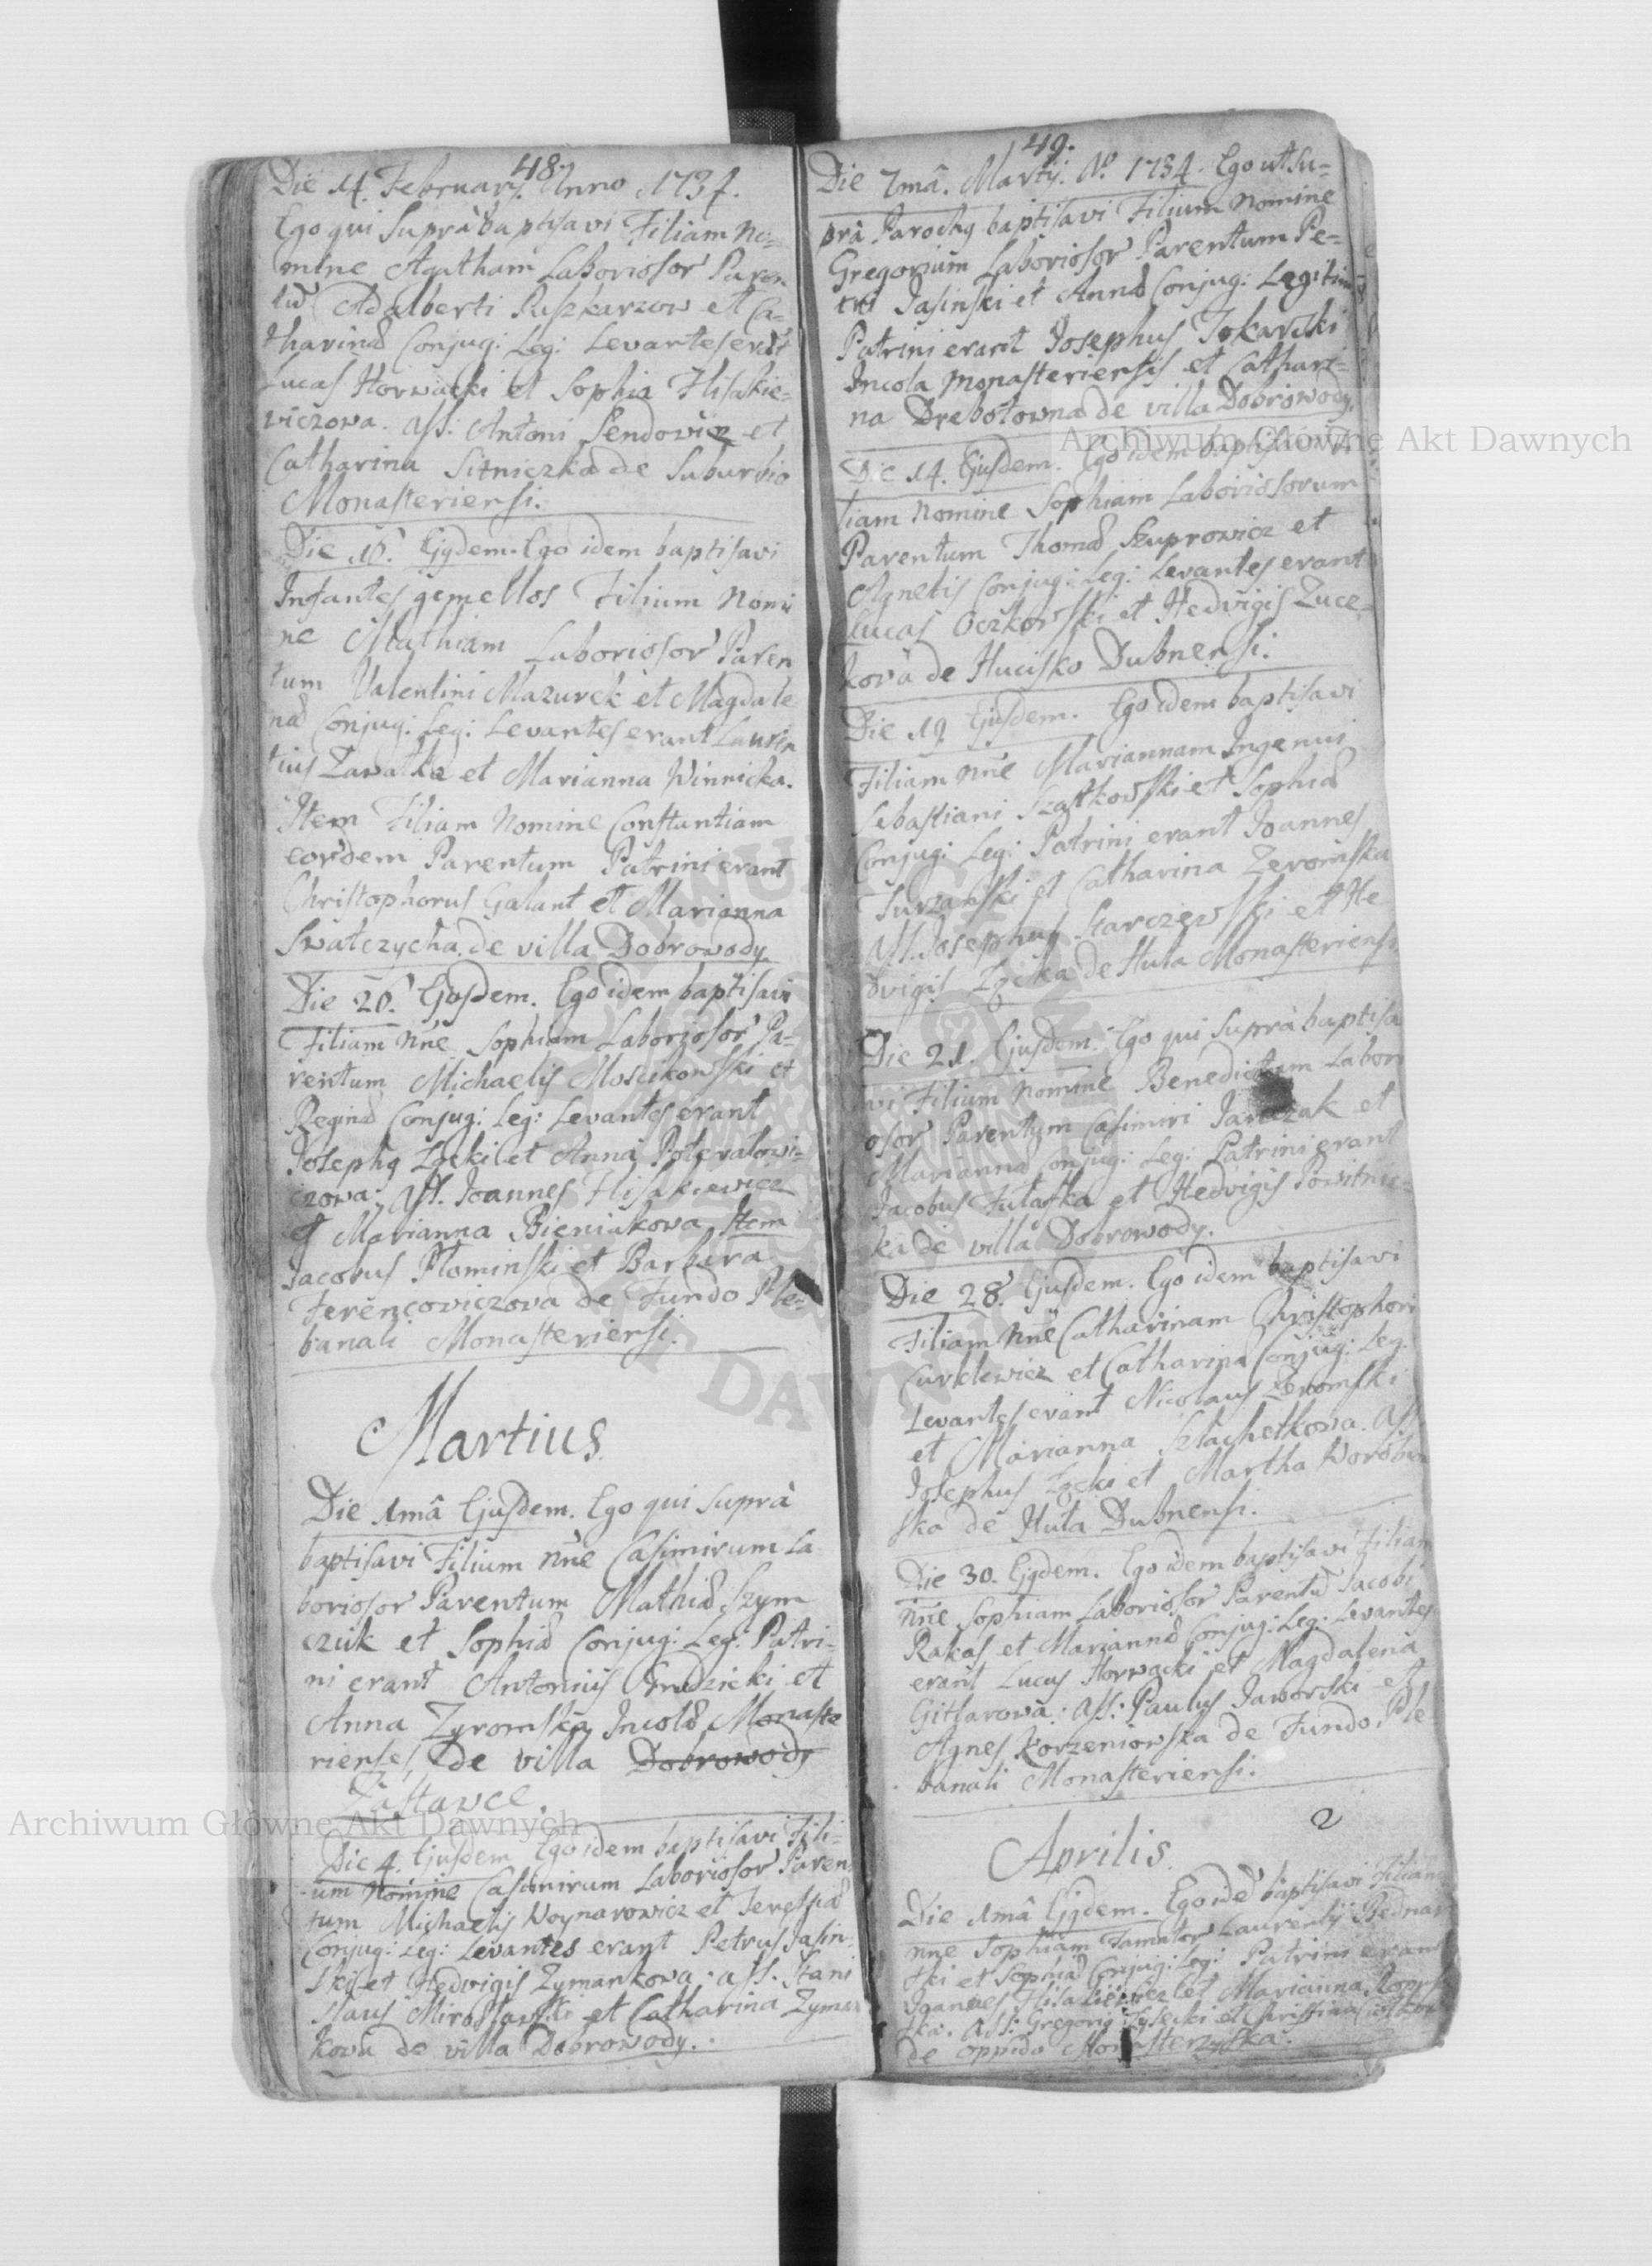 48.
Die 14. Februarÿ. Anno 1734.
Ego qui Suprà baptisavi Filiam No=
mine Agatham Laboriosor Paren
tũ Adalberti Puszkarzow et Ca=
tharinæ Conjug: Leg: Levantes erãt
Lucas Horwacki et Sophia Hisakie=
wiczowa. Ass: Antoni Sendowicz et
Catharina Sitniczka de Suburbio
Monasteriensi.
Die 16. Ejqdem. Ego idem baptisavi
Infantes gemellos Filium Nomi
ne Mathiam Laboriosor Paren
tum Valentini Mazurek et Magdale
næ Conjug: Leg: Levantes erant Lauren
tius Zawatka et Marianna Winnicka.
Item Filiam Nomine Constantiam
eordem Parentum Patrini erant
Christophorus Galant et Marianna
Swatczycha de villa Dobrowody
Die 26. Ejusdem. Ego idem baptisavi
Filiam Nñe Sophiam Laboriosor Pa=
rentum Michaelis Moscikowski et
Reginæ Conjug: Leg: Levantes erant
Josephq Łęcki et Anna Poteralowi=
czowa; Ass. Joannes Hisakiewicz
et Marianna Bieniakowa, Item
Jacobus Płominski et Barbara
Ferencowiczowa de Fundo Ple=
banali Monasteriensi.
Martius.
Die 1mâ Ejusdem. Ego qui suprà
baptisavi Filium Nñe Casimirum La
boriosor Parentum Mathiæ Szym
czuk et Sophiæ Conjug: Leg: Patri=
ni erant Antonius Grudzicki et
Anna Zyromska Incolæ Monaste
rienses, de villa Dobrowody
Zastawce.
Die 4. Ejusdem Ego idem baptisavi Fili=
um Nomine Casimirum Laboriosor Paren
tum Michaelis Woynarowicz et Teressiæ
Conjug: Leg: Levantes erant Petrus Jasin
ski et Hedvigis Zymankowa; ass. Stani
slaus Mirosławski et Catharina Zyman
kowa de villa Dobrowody.
49.
Die 7mâ. Martÿ. Aº 1734. Ego ut Su=
prà Parochq baptisavi Filium Nomine
Gregorium Laboriosor Parentum Pe=
tri Jasinski et Annæ Conjug: Legitim
Patrini erant Josephus Tokarski
Incola Monasteriensis et Cathari=
na Drebotowna de villa Dobrowody.
Die 14. Ejusdem. Ego idem baptisavi Fi
liam Nomine Sophiam Laboriosorum
Parentum Thomæ Szuprowicz et
Agnetis Conjug: Leg: Levantes erant
Lucas Oczkowski et Hedvigis Zucz=
kowa de Hucisko Dubnensi.
Die 19 Ejusdem. Ego idem baptisavi
Filiam Nñe Mariannam Ingenui
Sebastiani Szastkowski et Sophiæ
Conjug: Leg: Patrini erant Joannes
Turzanski et Catharina Zeromska
Ass. Josephus Skarczewski et He
dvigis Łęcka de Huta Monasteriensi
Die 21. Ejusdem. Ego qui suprà baptisa
vi Filium Nomine Benedictum Labori
osor Parentum Casimiri Jarczak et
Mariannæ Conjug: Leg: Patrini erant
Jacobus Futaska et Hedvigis Powitnic=
ka de villa Dobrowody.
Die 28. Ejusdem. Ego idem baptisavi
Filiam Nñe Catharinam Christophori
Curklewicz et Catharinæ Conjug: Leg.
Levantes erant Nicolaus Zeromski
et Marianna Szlachetkowa. Ass
Josephus Łęcki et Martha Worobow
ska de Huta Dubnensi.
Die 30. Ejqdem. Ego idem baptisavi Filiam
Nñe Sophiam Laboriosor Parentũ Jacobi
Rakas et Mariannæ Conjug: Leg: Levantes
erant Lucas Horwacki et Magdalena
Gitlarowa; Ass: Paulus Jaworski et
Agnes Korzeniowska de Fundo Ple
banali Monasteriensi.
2
Aprilis.
Die 1mâ Ejqdem. Ego idẽ baptisavi Filiam
Nñe Sophiam Famator Laurentÿ Bednar
ski et Sophiæ Conjug: Leg: Patrini erant
Joannes Hisakiewicz et Marianna
ska. Ass: Gregorq Łysecki et Christina
de oppido Monasterzyska.
Archiwum Główne Akt Dawnych
Archiwum Główne Akt Dawnych